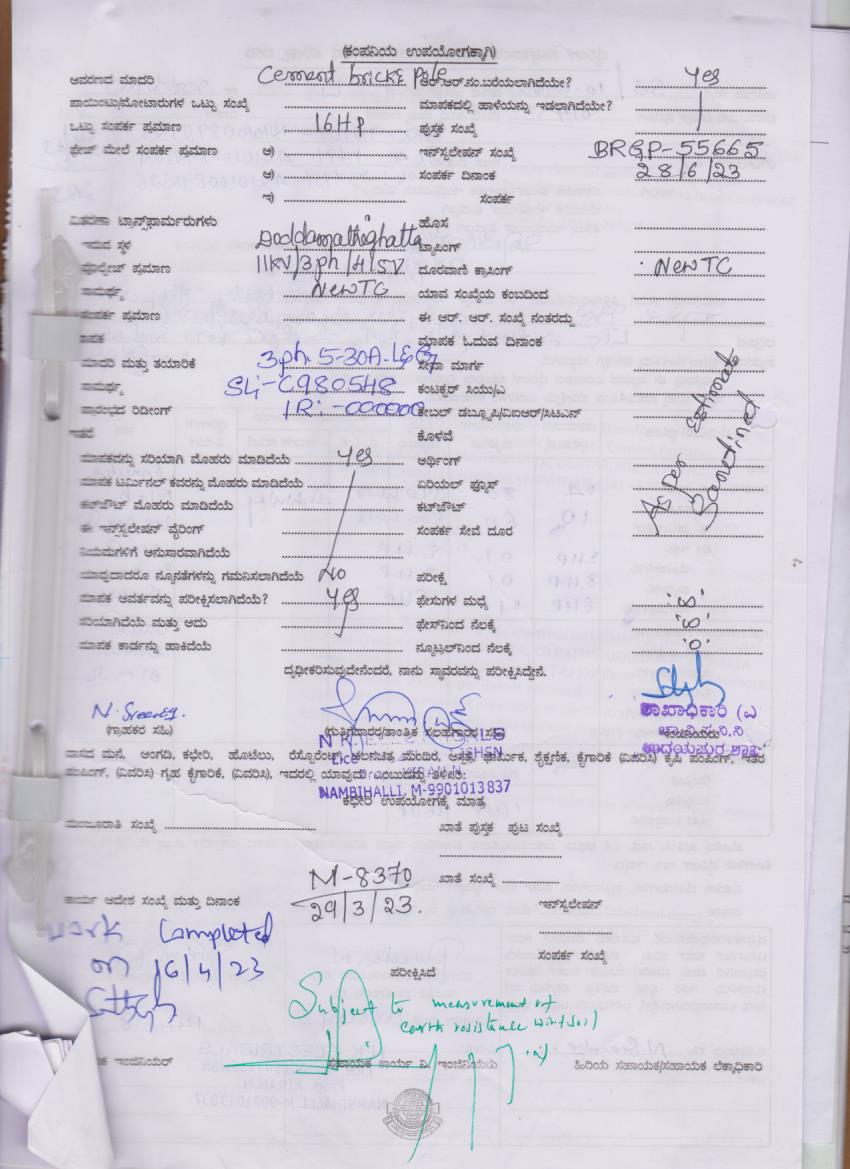 (ಕಂಪನಿಯ ಉಪಯೋಗಕ್ಕಾಗಿ)
ಆವರಣದ ಮಾದರಿ Cement bricks pole ಆರ್.ಆರ್.ನಂ.ಬರೆಯಲಾಗಿದೆಯೇ? Yes
ಪಾಯಿಂಟು/ಮೋಟಾರುಗಳ ಒಟ್ಟು ಸಂಖ್ಯೆ ಮಾಪಕದಲ್ಲಿ ಹಾಳೆಯನ್ನು ಇಡಲಾಗಿದೆಯೇ?
ಒಟ್ಟು ಸಂಪರ್ಕ ಪ್ರಮಾಣ 16HP ಪುಸ್ತಕ ಸಂಖ್ಯೆ
ಫೇಜ್ ಮೇಲೆ ಸಂಪರ್ಕ ಪ್ರಮಾಣ ಅ) ಇನ್‌ಸ್ಟಲೇಷನ್ ಸಂಖ್ಯೆ BRGP-55665
ಆ) ಸಂಪರ್ಕ ದಿನಾಂಕ 28/6/23
ಇ) ಸಂಪರ್ಕ
ವಿತರಣಾ ಟ್ರಾನ್ಸ್‌ಫಾರ್ಮರುಗಳು ಹೊಸ
ಇರುವ ಸ್ಥಳ Doddamathighatta ಟ್ಯಾಪಿಂಗ್
ವೋಲ್ಟೇಜ್ ಪ್ರಮಾಣ 11KV/3ph/415V ದೂರವಾಣಿ ಕ್ರಾಸಿಂಗ್ New TC
ಸಾಮರ್ಥ್ಯ New TC ಯಾವ ಸಂಖ್ಯೆಯ ಕಂಬದಿಂದ
ಸಂಪರ್ಕ ಪ್ರಮಾಣ ಈ ಆರ್. ಆರ್. ಸಂಖ್ಯೆ ನಂತರದ್ದು
ಮಾಪಕ ಮಾಪಕ ಓದುವ ದಿನಾಂಕ
ಮಾದರಿ ಮತ್ತು ತಯಾರಿಕೆ 3ph 5-30A-L&G ಸೇವಾ ಮಾರ್ಗ
ಸಾಮರ್ಥ್ಯ SL:-C980548 ಕಂಟಕ್ಟರ್ ಸಿಯು/ಎ
ಪ್ರಾರಂಭದ ರಿಡಿಂಗ್ IR:-000000 ಕೇಬಲ್ ಡಬ್ಲ್ಯೂಪಿ/ವಿಐಆರ್/ಸಿಟಿಎನ್
As per Estimate Sanctined
ಇತರೆ ಕೊಳವೆ
ಮಾಪಕವನ್ನು ಸರಿಯಾಗಿ ಮೊಹರು ಮಾಡಿದೆಯೆ Yes ಅರ್ಥಿಂಗ್
ಮಾಪಕ ಟರ್ಮಿನಲ್ ಕವರನ್ನು ಮೊಹರು ಮಾಡಿದೆಯೆ ಏರಿಯಲ್ ಫ್ಯೂಸ್
ಕಟ್‌ಔಟ್ ಮೊಹರು ಮಾಡಿದೆಯೆ ಕಟ್‌ಔಟ್
ಈ ಇನ್‌ಸ್ಟಲೇಷನ್ ವೈರಿಂಗ್ ಸಂಪರ್ಕ ಸೇವೆ ದೂರ
ನಿಯಮಗಳಿಗೆ ಅನುಸಾರವಾಗಿದೆಯೆ
ಯಾವುದಾದರೂ ನ್ಯೂನತೆಗಳನ್ನು ಗಮನಿಸಲಾಗಿದೆಯೆ NO ಪರೀಕ್ಷೆ
ಮಾಪಕ ಅವರ್ತವನ್ನು ಪರೀಕ್ಷಿಸಲಾಗಿದೆಯೆ? Yes ಫೇಸುಗಳ ಮಧ್ಯೆ
ಸರಿಯಾಗಿದೆಯೆ ಮತ್ತು ಅದು ಫೇಸ್‌ನಿಂದ ನೆಲಕ್ಕೆ
ಮಾಪಕ ಕಾರ್ಡನ್ನು ಹಾಕಿದೆಯೆ ನ್ಯೂಟ್ರಲ್‌ನಿಂದ ನೆಲಕ್ಕೆ
ದೃಢೀಕರಿಸುವುದೇನೆಂದರೆ, ನಾನು ಸ್ಥಾವರವನ್ನು ಪರೀಕ್ಷಿಸಿದ್ದೇನೆ.
ಶಾಖಾಧಿಕಾರಿ
(ಗ್ರಾಹಕರ ಸಹಿ) (ಗುತ್ತಿಗೆದಾರರ/ತಾಂತ್ರಿಕ ಸಲಹೆಗಾರರ ಸಹಿ)
ವಾಸದ ಮನೆ, ಅಂಗಡಿ, ಕಛೇರಿ, ಹೊಟೆಲು, ರೆಸ್ಟೋರೆಂಟ್, ಚಲನಚಿತ್ರ ಮಂದಿರ, ಆಸ್ಪತ್ರೆ, ಧಾರ್ಮಿಕ, ಶೈಕ್ಷಣಿಕ, ಕೈಗಾರಿಕೆ (ವಿವರಿಸಿ) ಕೃಷಿ ಪಂಪಿಂಗ್, ಇತರ
ಪಂಪಿಂಗ್, (ವಿವರಿಸಿ) ಗೃಹ ಕೈಗಾರಿಕೆ, (ವಿವರಿಸಿ), ಇದರಲ್ಲಿ ಯಾವುದು ಎಂಬುದನ್ನು ತಿಳಿಸಿ:
NAMBIHALLI, M-9901013837
ಕಛೇರಿ ಉಪಯೋಗಕ್ಕೆ ಮಾತ್ರ
ಮಂಜೂರಾತಿ ಸಂಖ್ಯೆ ಖಾತೆ ಪುಸ್ತಕ ಪುಟ ಸಂಖ್ಯೆ
M-8370 ಖಾತೆ ಸಂಖ್ಯೆ
ಕಾರ್ಯ ಆದೇಶ ಸಂಖ್ಯೆ ಮತ್ತು ದಿನಾಂಕ 29/3/23. ಇನ್‌ಸ್ಟಲೇಷನ್
work Completed
on 16/4/23
ಸಂಪರ್ಕ ಸಂಖ್ಯೆ
ಪರೀಕ್ಷಿಸಿದೆ
Subject to measurement of
earth resistance
ಇಂಜಿನಿಯರ್ ಸಹಾಯಕ ಕಾರ್ಯ ನಿ. ಇಂಜಿನಿಯರು ಹಿರಿಯ ಸಹಾಯಕ/ಸಹಾಯಕ ಲೆಕ್ಕಾಧಿಕಾರಿ